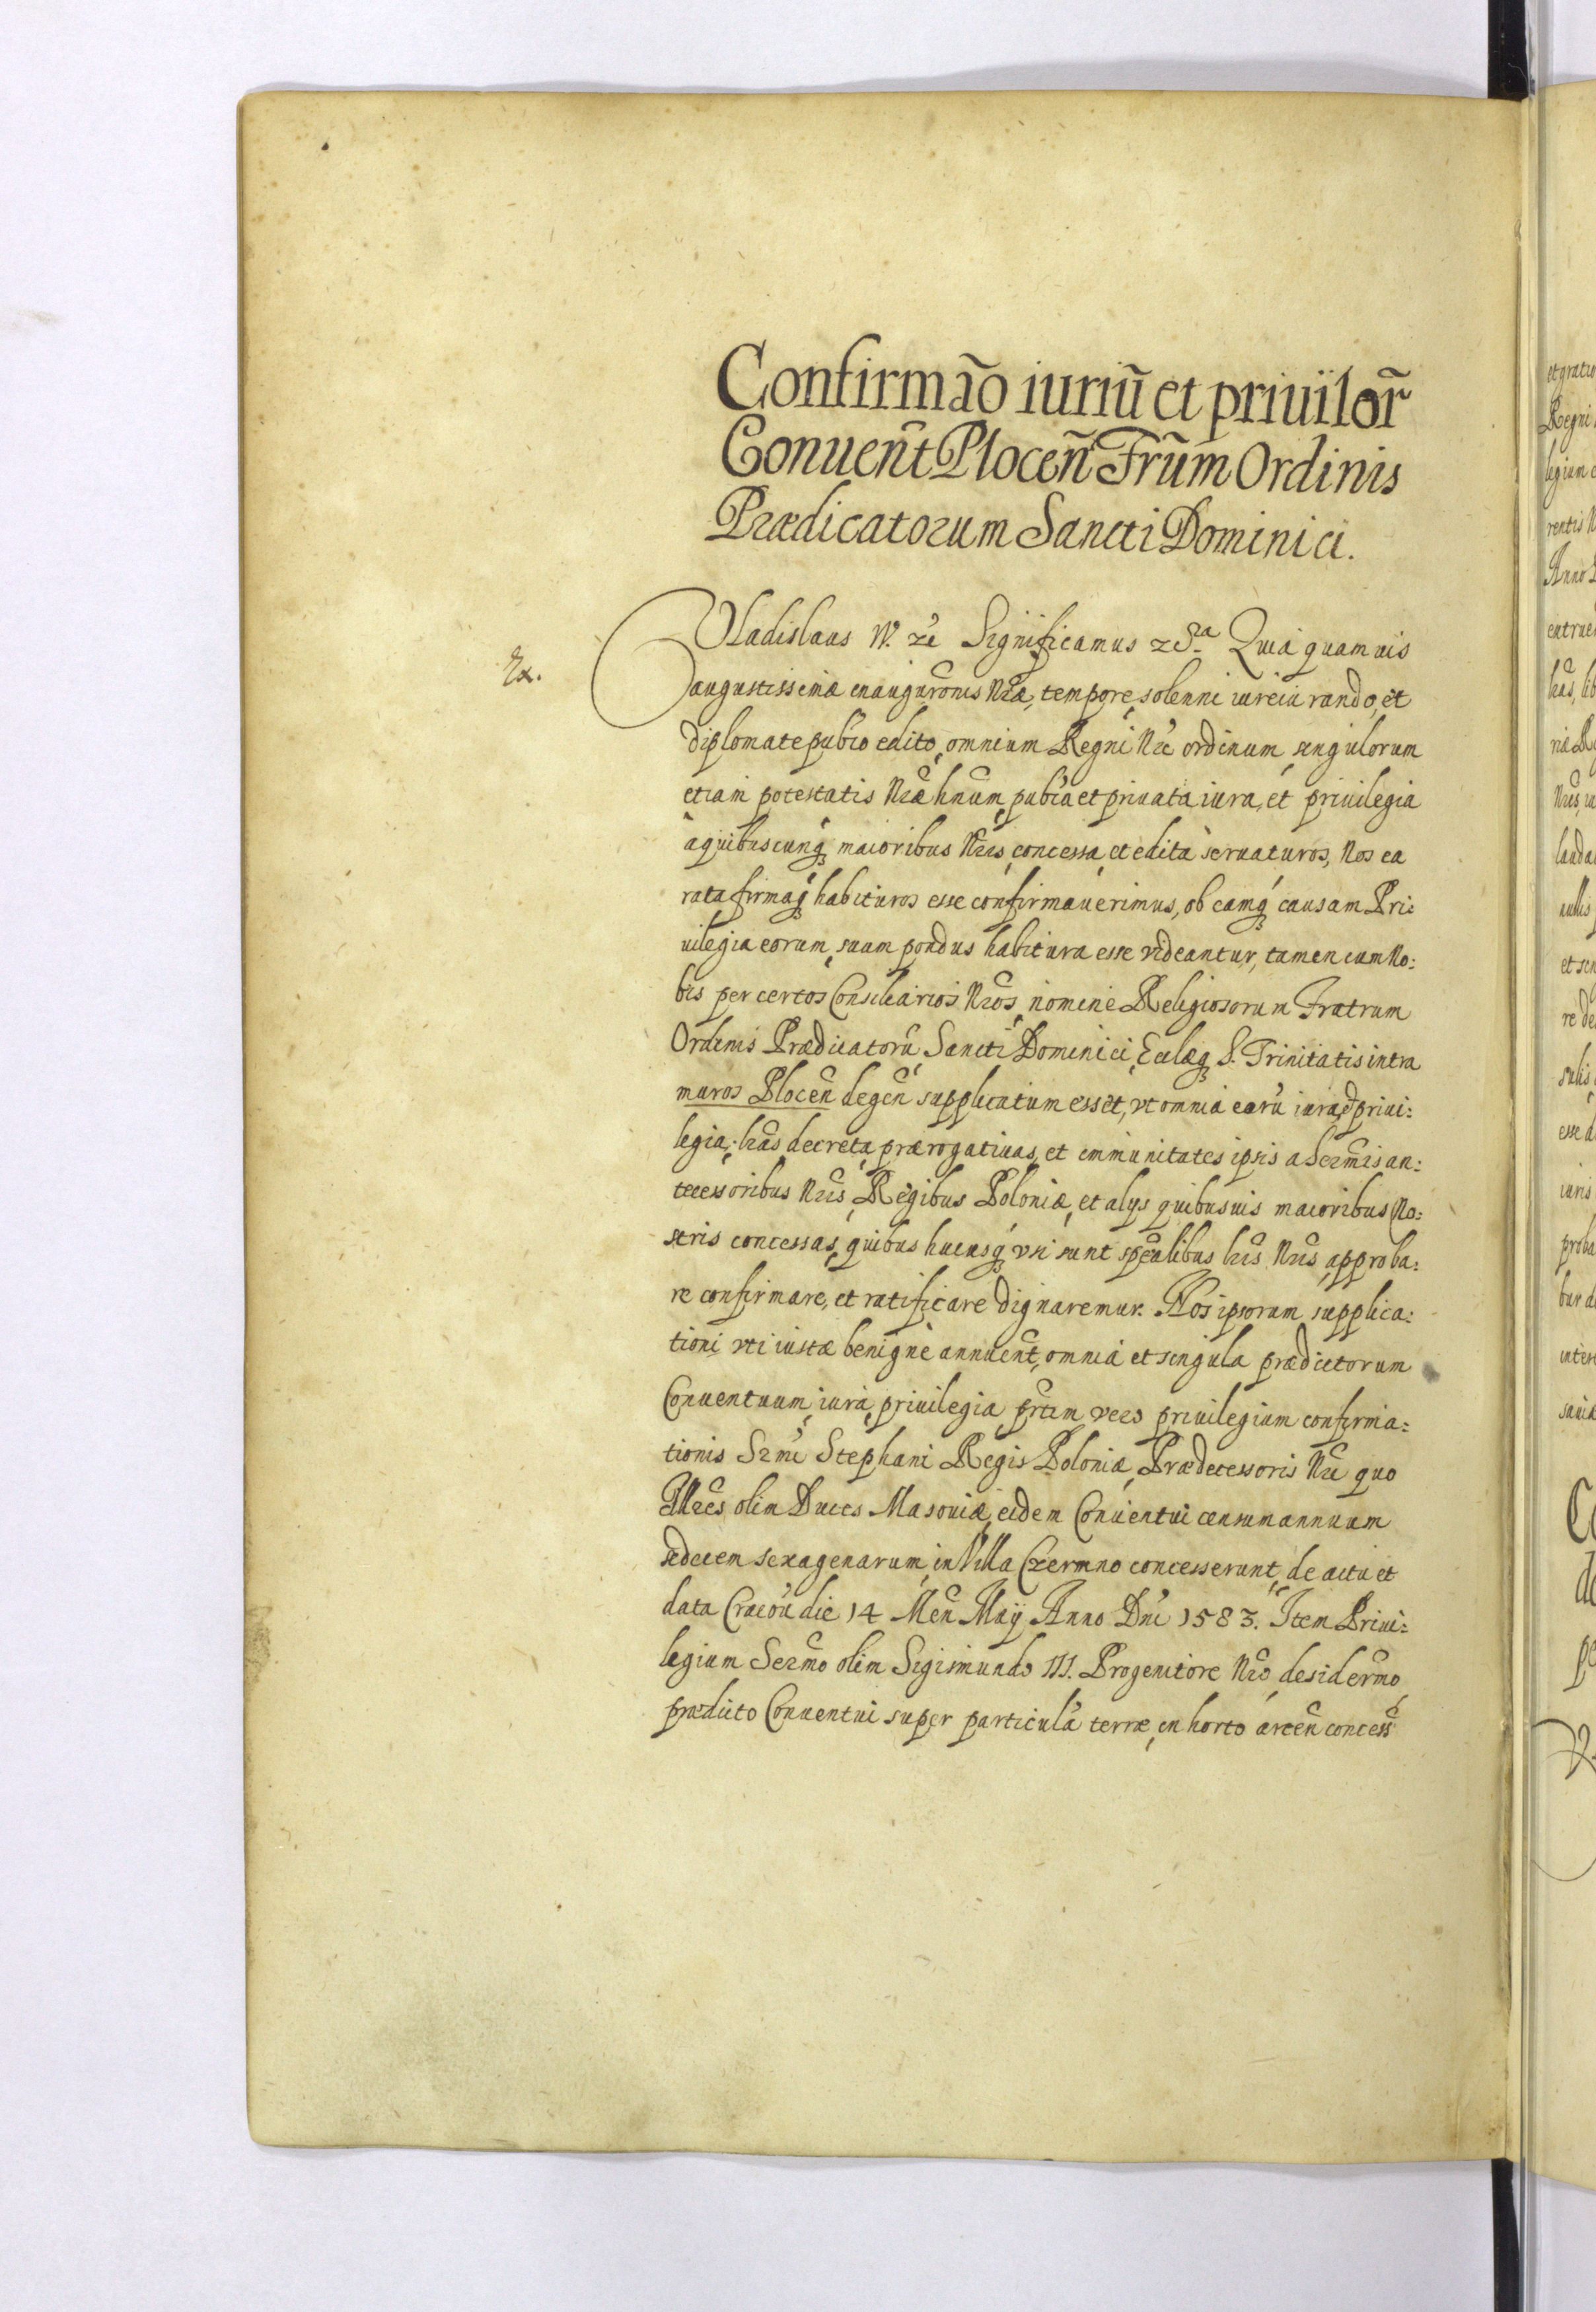 Confirmāo iuriū et priuilor̃
Conuent̃ Plocen̄ Fr̃um Ordinis
Prædicatorum Sancti Dominici.
Vladislaus IV. rc̃ Significamus rc̃. Sa. Quia quamuis
Rx.
augustissimæ inaugur̃onis Nr̃æ, tempore, solenni iureiurando, et
diplomate pub̃co edito, omnium Regni Nr̃i ordinum, singulorum
etiam potestatis Nr̃æ hn̄um, pub̃ca et priuata iura, et priuilegia
à quibuscunq; maioribus Nr̃is, concessa, et edita seruaturos, Nos ea
rata firmaq; habituros esse confirmauerimus, ob eamq; causam Pri:
uilegia eorum, suum pondus habitura esse videantur, tamen cum No:
bis per certos Consiliarios Nr̃os, nomine Religiosorum Fratrum
Ordinis Prædicatorũ, Sancti Dominici, Eccl̃æq; S. Trinitatis intra
muros Plocen̄ degen̄ supplicatum esset, vt omnia earũ iura, et priui:
legia, lr̃as, decreta, prærogatiuas, et immunitates ipsis a Ser̃mis an:
tecessoribus Nr̃is, Regibus Poloniæ, et alys quibusuis maioribus No:
stris concessas, quibus hucusq; vsi sunt sp̃ealibus lr̃is Nr̃is, approba:
re confirmare, et ratificare dignaremur. Nos ipsorum supplica:
tioni vti iustæ benignè annuen̄t, omnia et singula prædictorum
Conuentuum, iura, priuilegia pr̃tim vero priuilegium confirma:
tionis Sr̃mi Stephani Regis Poloniæ, Prædecessoris Nr̃i quo
Ill̃res olim Duces Masouiæ, eidem Conuentui censum annuum
sedecem sexagenarum, in Villa Czermno concesserunt, de actu et
data Cracoũ die 14 Men̄ Maÿ Anno Dn̄i 1583. Item Priui:
legium Ser̃mo olim Sigismundo III. Progenitore Nr̃o, desider̃mo,
prædicto Conuentui super particulã terræ, in horto arcen̄ concess̃